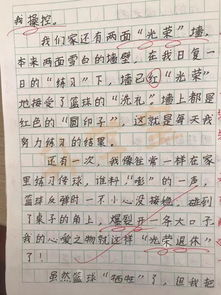 我操控。
我们家还有两面“光荣”墙。
本来两面雪白的墙壁，在我日复一
日的“练习”下，墙已红“光荣”
地接受了篮球的“洗礼”。墙上都是
红色的“圆印子”，这就是每天我
努力练习的结果。
还有一次，我像往常一样在家
里练习传球，谁料“嘭”的一声，
篮球反弹时一不小心没接稳，碰到
了桌子的角上，爆裂开一条大口子。
我的心爱之物就这样“光荣退休”
了！
虽然篮球“牺牲”了，但我把